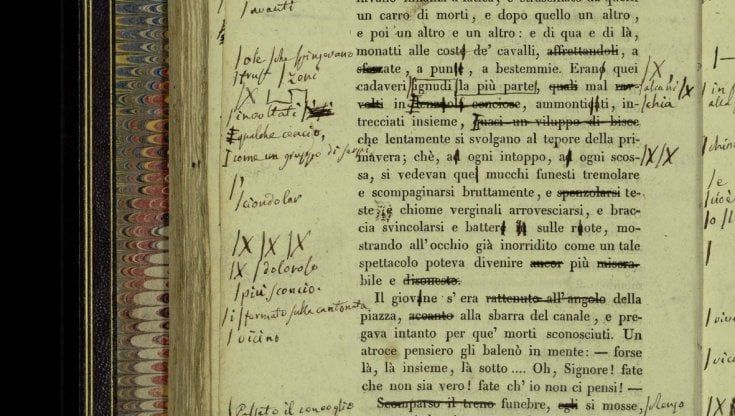 un carro di morti, e dopo quello un altro,
e poi un altro e un altro: e di qua e di là,
monatti alle coste de' cavalli, affrettandoli, a
sforzate, a punte, a bestemmie. Erano quei
cadaveri ignudi la più parte, quali mal
in, ammonticati, in-
trecciati insieme, quasi un viluppo di bisce
che lentamente si svolgano al tepore della pri-
mavera; chè, ad ogni intoppo, ad ogni scos-
sa, si vedevan quei mucchi funesti tremolare
e scompaginarsi bruttamente, e spenzolarsi te-
ste, e chiome verginali arrovesciarsi, e brac-
cia svincolarsi e batter sulle ruote, mo-
strando all'occhio già inorridito come un tale
spettacolo poteva divenire ancor più misera-
bile e disonesto.
Il giovane s'era rattenuto all'angolo della
piazza, accanto alla sbarra del canale, e pre-
gava intanto per que' morti sconosciuti. Un
atroce pensiero gli balenò in mente: — forse
là, là insieme, là sotto .... Oh, Signore! fate
che non sia vero! fate ch'io non ci pensi! —
Scomparso il treno funebre, egli si mosse,
avanti
che spingevano
zoni
X
involtati
qualche cencio,
come un gruppo di serpi
ciondolar
X X X
X dolorolo
più sconcio.
i fermato sulla cantonata
vicino
Passato il convoglio
X
alcuni X
chia
X X